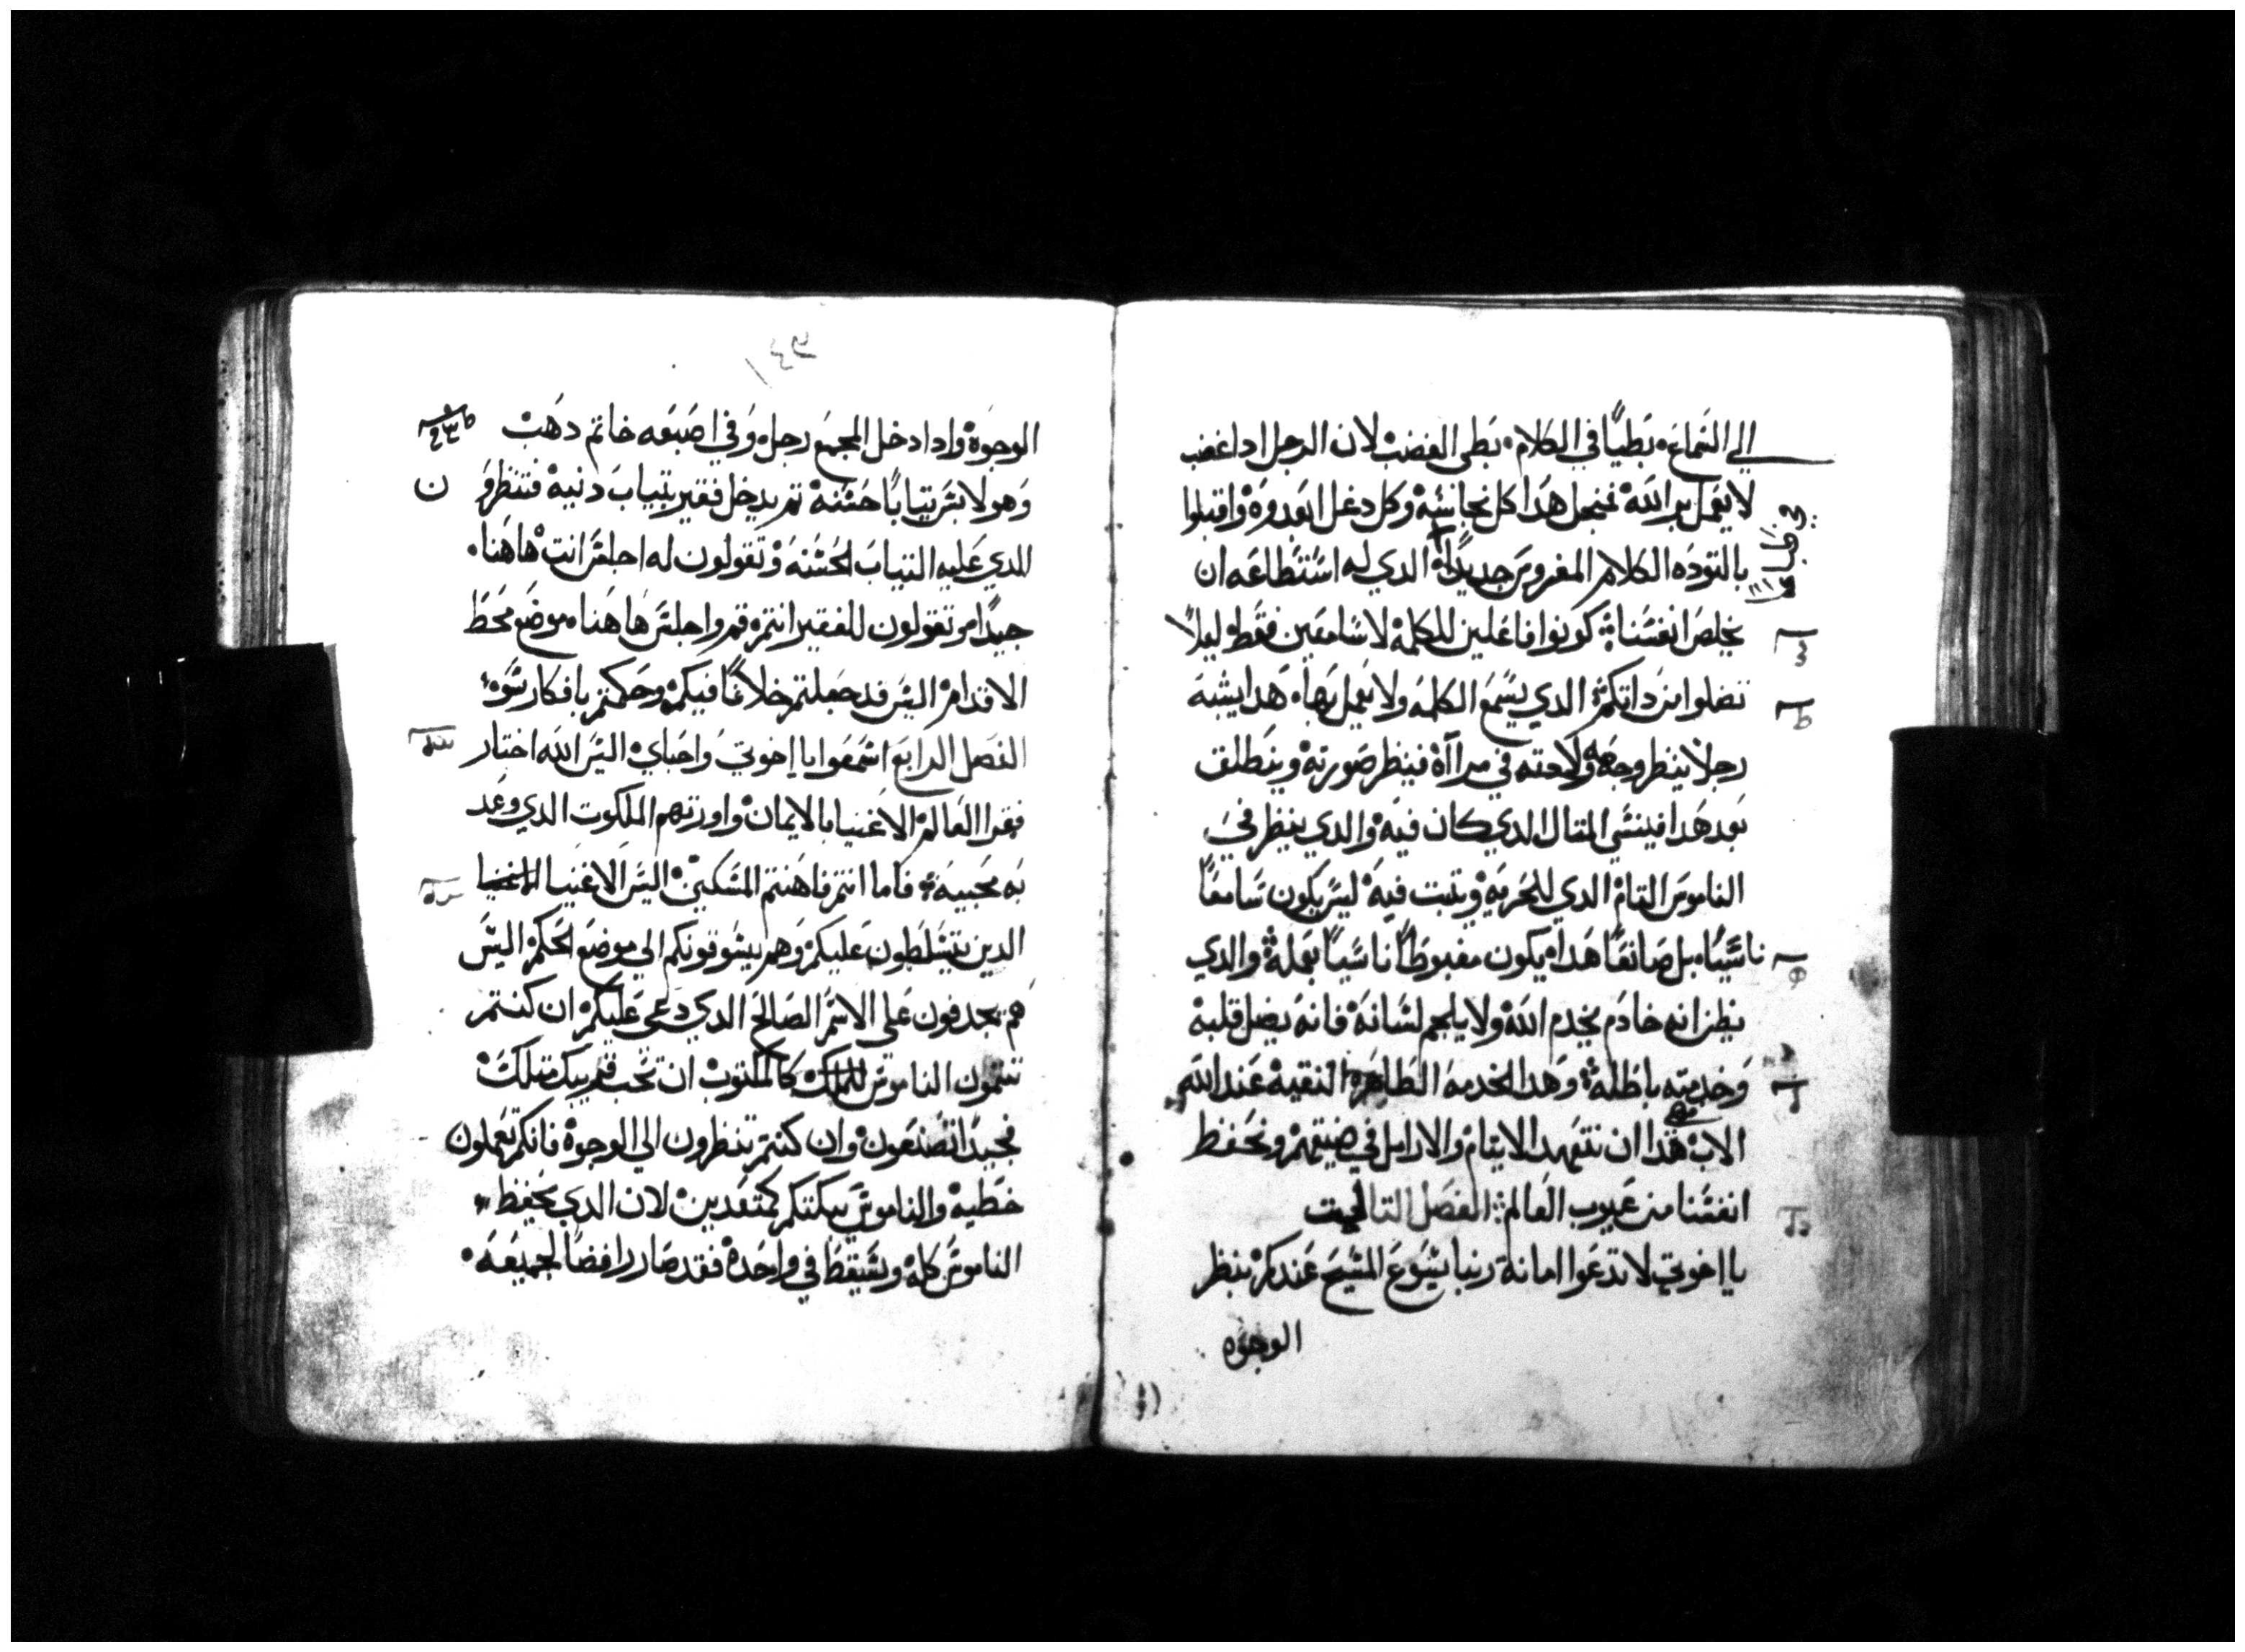 الي السماع، بطيًا في الكلام، بطي الغضب لان الرجل ادا غضب
لا يعمل بر الله فنجعل هدا كل نجاسة وكل دغل ابعدوه واقبلوا
بالتوده الكلام المغروس جديدًا الدي له استطاعه ان
يخلص انفسنا كونوا فاعلين للكلمة لا سامعين فقط ليلا
تضلوا من داتكم الدي يسمع الكلمه ولا يعمل بها، هدا يشبه
رجلا ينظر وجهه ولاحته في مرااة فينظر صورته وينطلق
بعد هدا فينسي المتال الدي كان فيه والدي ينظر في
الناموس التام الدي للحريه ويتبت فيه ليس يكون سامعًا
ناسيًا، بل صانعًا هدا، يكون مغبوطًا ناسيًا بعمله والدي
يظن انه خادم يخدم الله ولا يلجم لسانه فانه يضل قلبه
وخدمته باطلة وهدا الخدمه الطاهره النقيه عند الله
الاب هدا ان نتعهد الايتام والارامل في ضيقتهم ونحفظ
انفسنا من عيوب العالم الفصل التالت
يا اخوتي لا تدعوا امانة ربنا يسوع المسيح عندكم بنظر
الوجوه
الوجوه وادا دخل المجمع رجل، وفي اصبعه خاتم دهب
وهو لابس تيابًا حسنه تم يدخل فقير بتياب دنيه فتنظروا
للدي عليه التياب الحسنه وتقولون له اجلس انت هاهنا،
جيدًا، وتقولون للفقير انت، قم واجلس هاهنا، موضع محط
الاقدام اليس قد جعلتم خلافًا فيكم وحكمتم بافكار سوء
الفصل الرابع اسمعوا يا اخوتي واحباي اليس الله اختار
فقرا العالم الاغنيا بالايمان واورتهم الملكوت الدي وعد
به محبيه فاما انتم فاهنتم المسكين اليس الاغنيا الاغنيا
الدين يتسلطون عليكم وهم يسوقونكم الي موضع الحكم اليس
هم يجدفون علي الاسم الصالح الدي دعي عليكم ان كنتم
تتمون الناموس للملك كالمكتوب ان تحب قريبك متلك
فجيدا تصنعون وان كنتم تنظرون الي الوجوه فانكم تعملون
خطيه والناموس يبكتكم كمتعدين لان الدي يحفظ
الناموس كله ويسقط في واحده فقد صار رافضا لجميعه